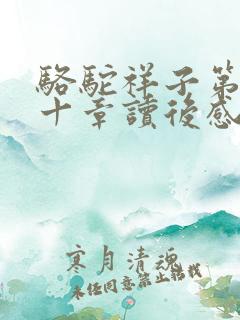 駱駝祥子第
十章讀後感
寒月清魂
未经同意禁止转载